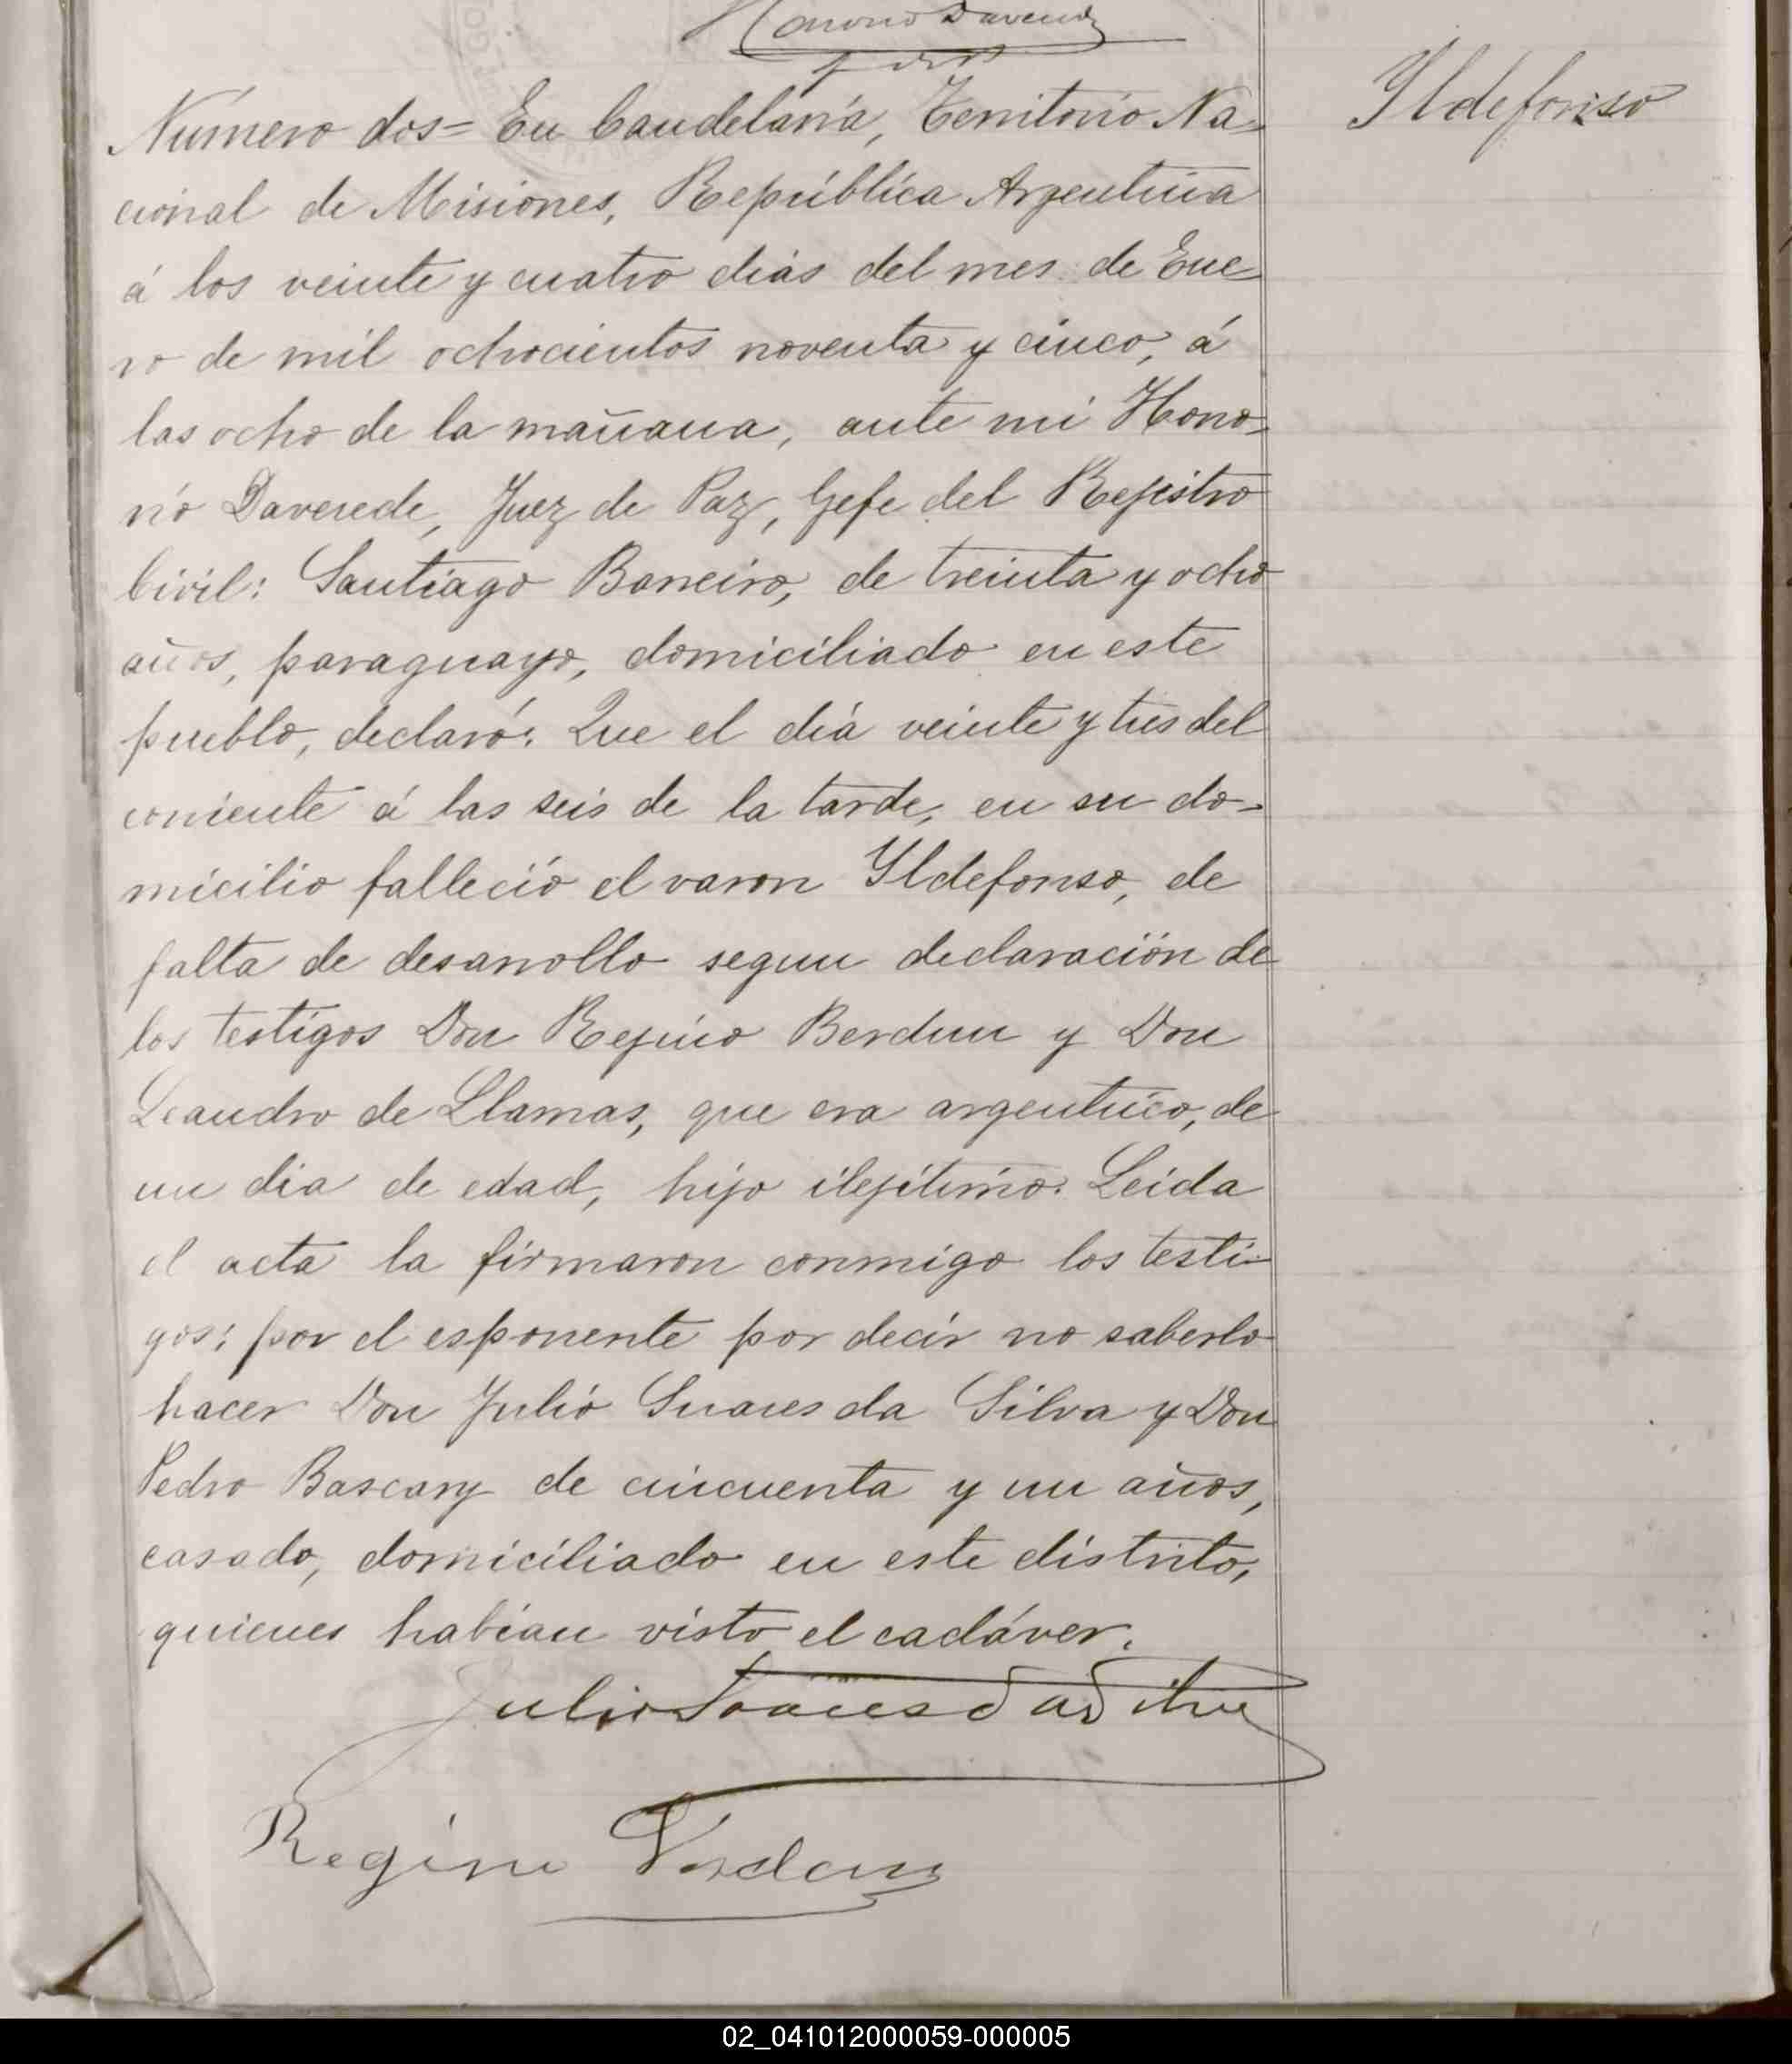 Honorio Daverede
Ildefonso
Número dos= En Candelaria, Territorio Na-
cional de Misiones, República Argentina
á los veinte y cuatro dias del mes de Ene
ro de mil ochocientos noventa y cinco, á
las ocho de la mañana, ante mi Hono-
rio Daverede, Juez de Paz, Gefe del Registro
Civil: Santiago Barreiro, de treinta y ocho
años, paraguayo, domiciliado en este
pueblo, declaró: Que el dia veinte y tres del
corriente á las seis de la tarde, en su do-
micilio falleció el varon Ildefonso, de
falta de desarrollo segun declaración de
los testigos Don Regino Berdun y Don
Leandro de Llamas, que era argentino, de
un dia de edad, hijo ilegítimo. Leida
el acta la firmaron conmigo los testi-
gos; por el esponente por decir no saberlo
hacer Don Julio Suares da Silva y Don
Pedro Bascary de cincuenta y un años,
casado, domiciliado en este distrito,
quienes habian visto el cadáver.
Julio Soares da Silva
Regino Verdun
02_041012000059-000005